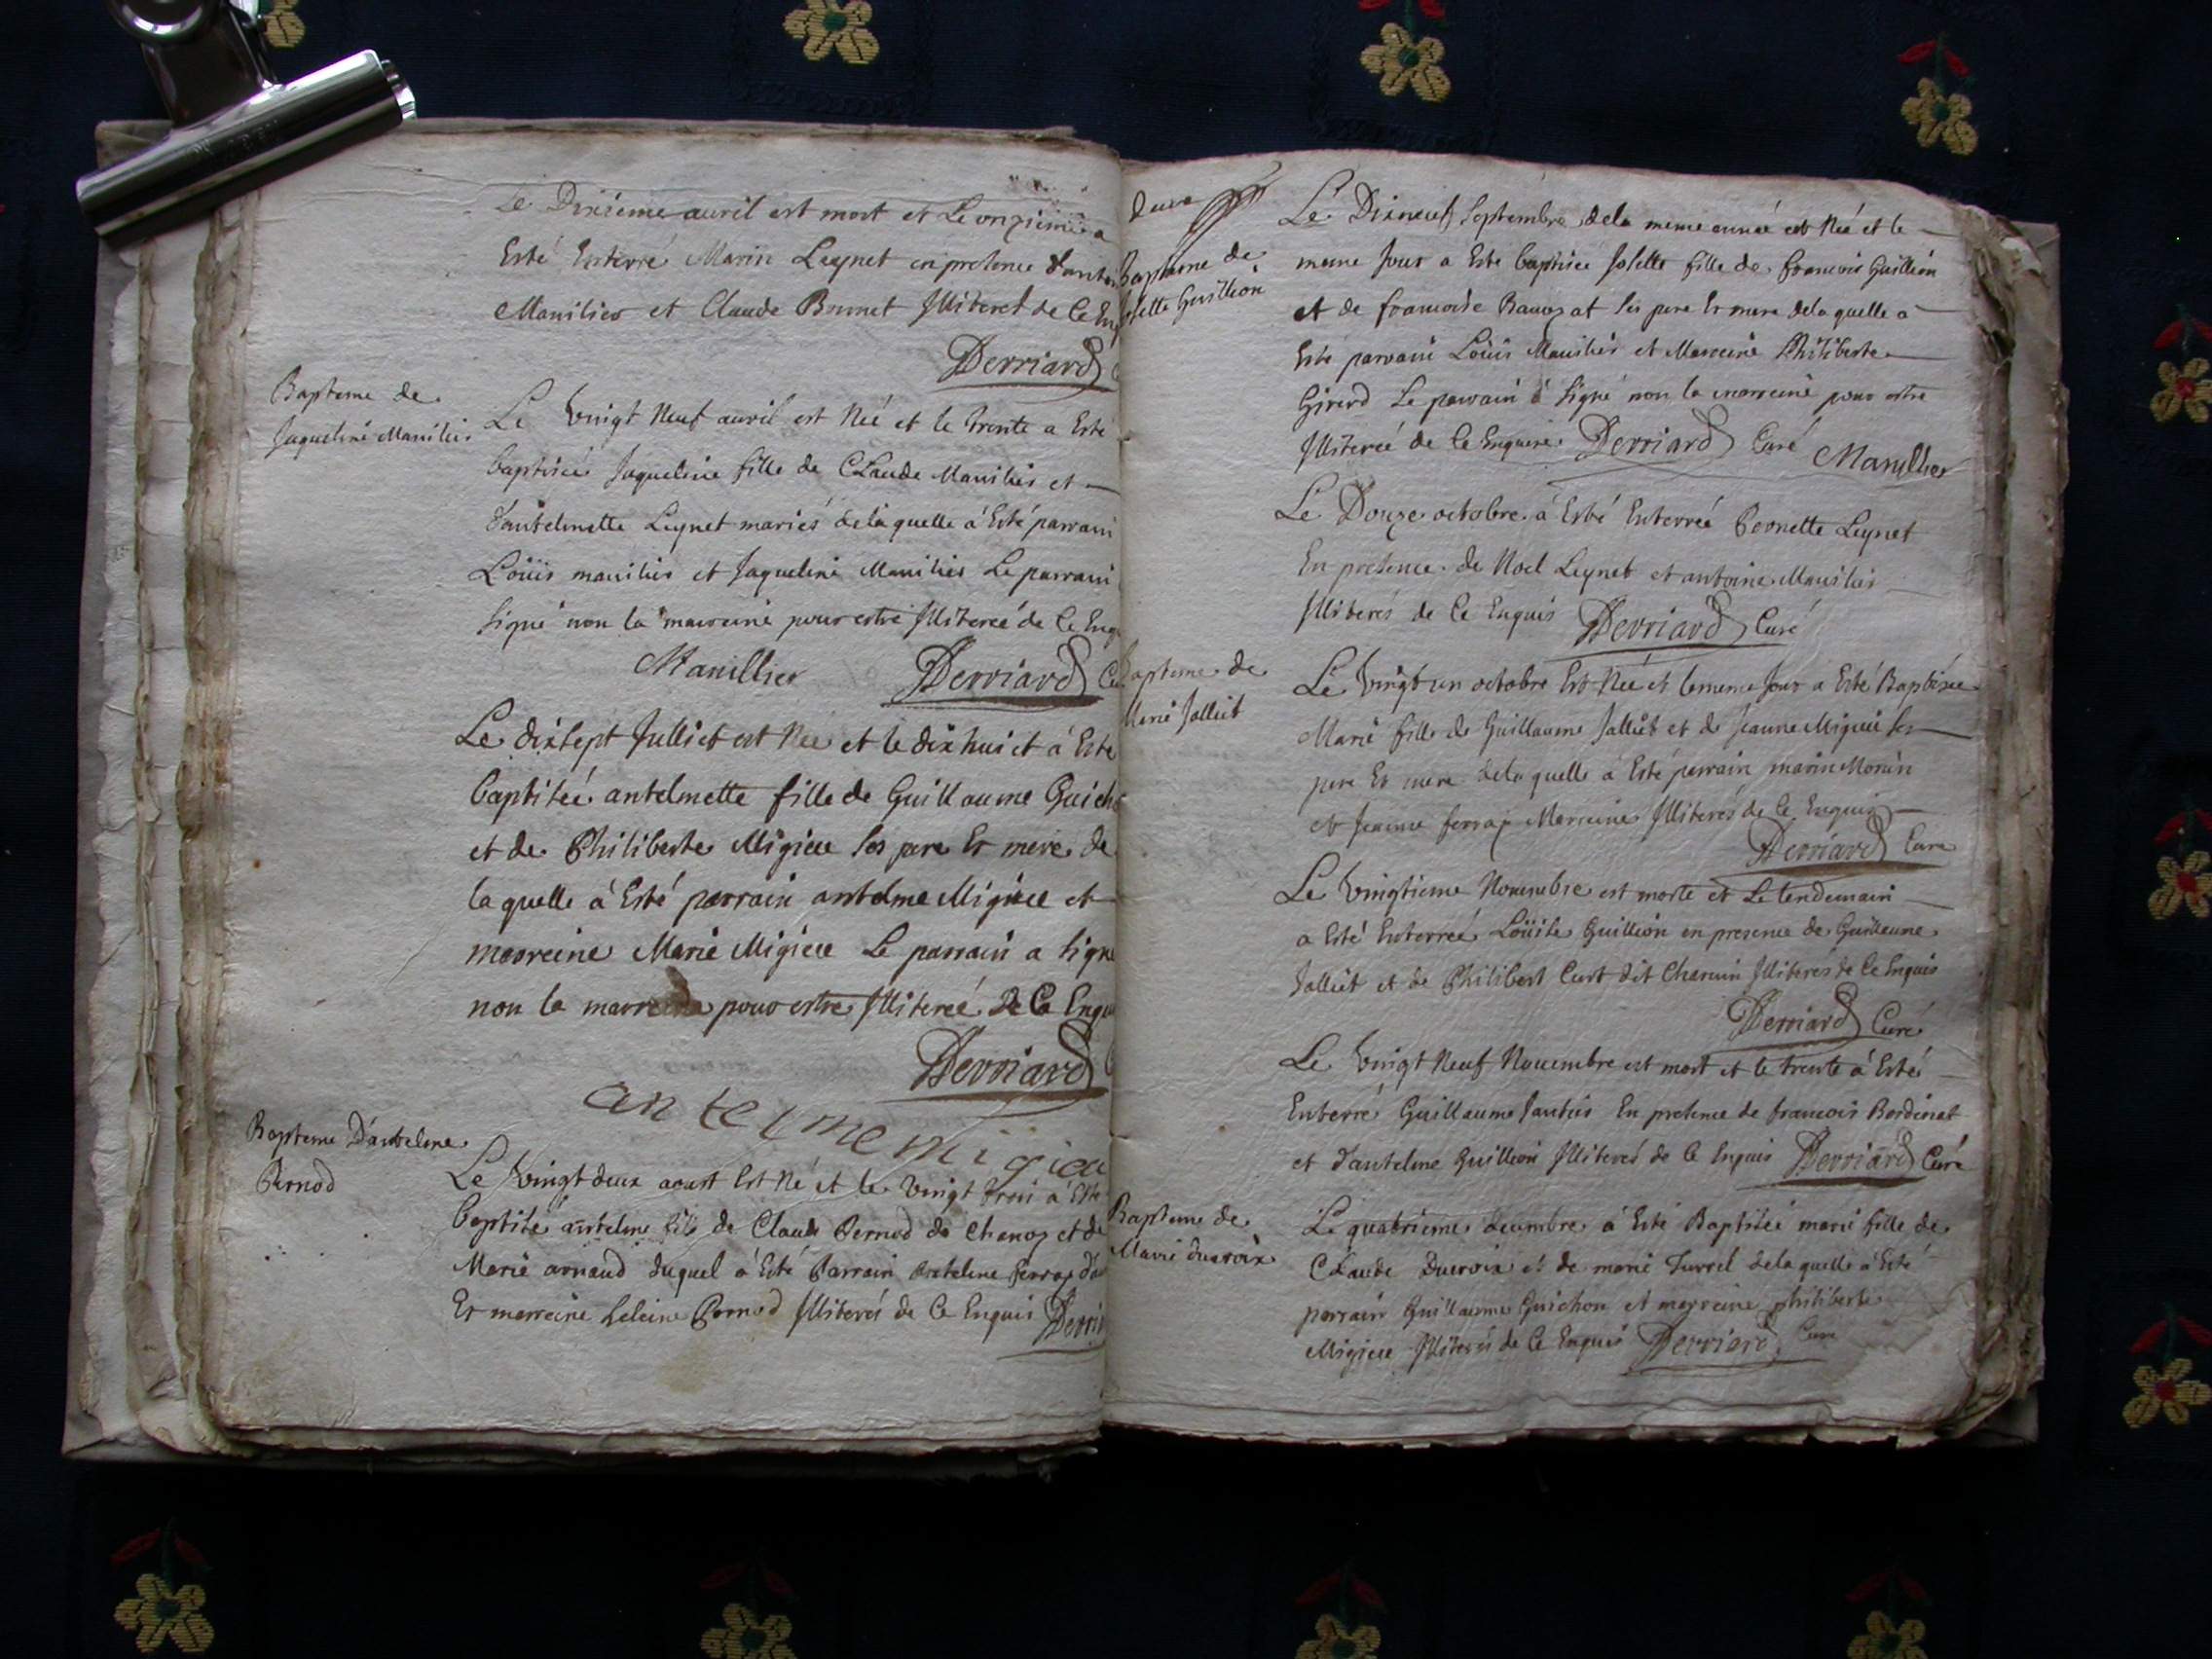 Le Dixieme auril est mort et Le onzieme a
Esté Enterré Marin Leynet en presence
Manilier et Claude Brunet Illiteret de Ce
Derriard
Bapteme de
Jaqueline Manilier
Le Vingt Neuf auril est Née et le trente a Esté
baptisée Jaqueline fille de CLaude Manilier et
d'antelmette Leynet mariés de la quelle á Esté parrain
Loüis manilier et Jaqueline Manilier Le parrain
signé non la marreine pour estre Illitereé de Ce
Manillier Derriard
Le dixsept Julliet est Née et le dix huict á Esté
baptiseé antelmette fille de Guillaume
et de Philiberte Migieu ses pere Et mere de
la quelle á Esté parrain antelme Migieu et
marreine Marie Migieu Le parrain a signé
non la pour estre Illitereé de Ce
Derriard
antelme migieu
Bapteme D'antelme
Pernod
Le Vingt deux aoust Est Né et le Vingt trois á Esté
baptisé antelme fils de Claude Pernod de Chanoz et de
Marie arnaud duquel á Esté Parrain antelme ferraz
Et marreine heleine Pernod Illiterés de Ce Enquis
Bapteme de
Guillion
Le Dixneuf Septembre dela meme année est Née et le
meme Jour a Esté baptisée Josette fille de francois Guillion
et de francoise ses pere Et mere dela quelle a
Esté parrain Loüis Manilier et Marreine Philiberte
Girerd Le parrain á signé non la marreine pour estre
Illitereé de Ce Enquise Derriard Curé Manillier
Le Douze octobre á Esté Enterreé Pernette Leynet
En presence de Noel Leynet et antoine Manilier
Illiterés de Ce Enquis Derriard Curé
Bapteme de
Marie Jolliet
Le Vingt un octobre Est Née et le meme Jour a Esté Baptisée
Marie fille de Guillaume Jolliet et de Jeanne Migieu ses
pere Et mere dela quelle á Esté parrain marin Morin
et Jeanne ferraz Marreine Illiterés de Ce Enquis
Derriard Curé
Le Vingtieme Nouembre est morte et Le lendemain
a Esté Enterreé Loüise Guillion en presence de Guillaume
Jolliet et de Philibert Curt dit Charuin Illiterés de Ce Enquis
Derriard Curé
Le Vingt Neuf Nouembre est mort et le trente á Esté
Enterré Guillaume En presence de francois
et d'antelme Guillion Illiterés de Ce Enquis Derriard Curé
Bapteme de
Marie ducroix
Le quatrieme decembre á Esté Baptiseé marie fille de
CLaude Ducroix et de marie Turrel dela quelle á Esté
parrain Guillaume Guichon et marreine philiberte
Migieu Illiterés de Ce Enquis Derriard Curé